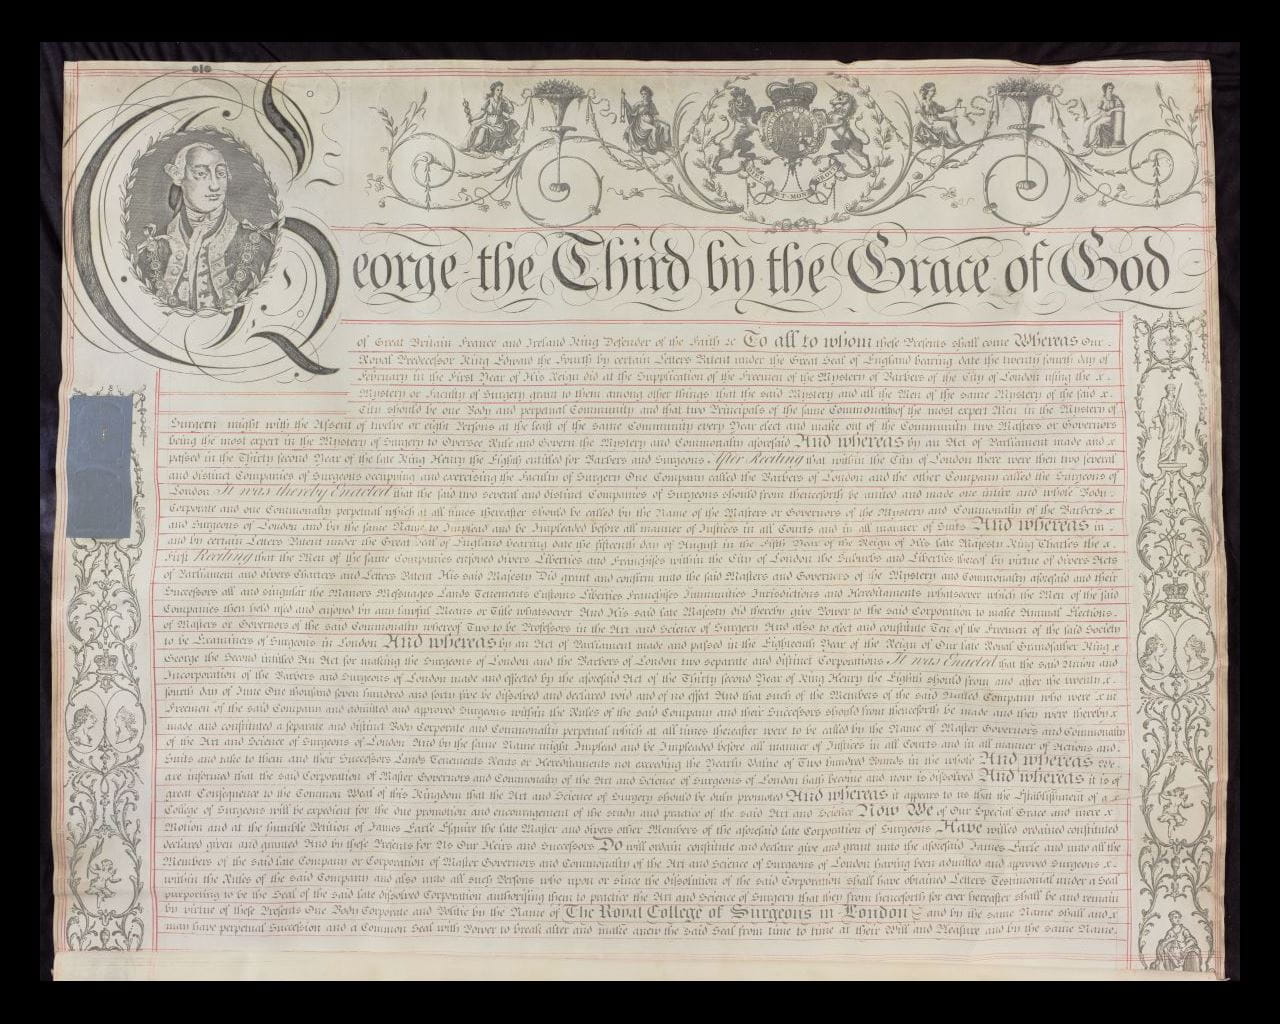 George the Third by the Grace of God
of Great Britain France and Ireland King Defender of the Faith &c To all to whom these Presents shall come Whereas Our
Royal Predecessor King Edward the Fourth by certain Letters Patent under the Great Seal of England bearing date the twenty fourth day of
February in the First Year of His Reign did at the Supplication of the Freemen of the Mystery of Barbers of the City of London using the x
Mystery or Faculty of Surgery grant to them among other things that the said Mystery and all the Men of the same Mystery of the said x
City should be one Body and perpetual Community and that two Principals of the same Commonalty of the most expert Men in the Mystery of
Surgery might with the Assent of twelve or eight Persons at the least of the same Community every Year elect and make out of the Community two Masters or Governors
being the most expert in the Mystery of Surgery to Oversee Rule and Govern the Mystery and Commonalty aforesaid And whereas by an Act of Parliament made and x
passed in the Thirty second Year of the late King Henry the Eighth entitled for Barbers and Surgeons After Reciting that within the City of London there were then two several
and distinct Companies of Surgeons occupying and exercising the Faculty of Surgery One Company called the Barbers of London and the other Company called the Surgeons of
London It was thereby Enacted that the said two several and distinct Companies of Surgeons should from thenceforth be united and made one intire and whole Body
Corporate and one Commonalty perpetual which at all times thereafter should be called by the Name of the Masters or Governors of the Mystery and Commonalty of the Barbers x
and Surgeons of London and by the same Name to Implead and be Impleaded before all manner of Justices in all Courts and in all manner of Suits And whereas in
and by certain Letters Patent under the Great Seal of England bearing date the fifteenth day of August in the Fifth Year of the Reign of His late Majesty King Charles the x
First Reciting that the Men of the same Companies enjoyed divers Liberties and Franchises within the City of London the Suburbs and Liberties thereof by virtue of divers Acts
of Parliament and divers Charters and Letters Patent His said Majesty Did grant and confirm unto the said Masters and Governors of the Mystery and Commonalty aforesaid and their
Successors all and singular the Manors Messuages Lands Tenements Customs Liberties Franchises Immunities Jurisdictions and Hereditaments whatsoever which the Men of the said
Companies then held used and enjoyed by any lawful Means or Title whatsoever And His said late Majesty did thereby give Power to the said Corporation to make Annual Elections
of Masters or Governors of the said Commonalty whereof Two to be Professors in the Art and Science of Surgery And also to elect and constitute Ten of the Freemen of the said Society
to be Examiners of Surgeons in London And whereas by an Act of Parliament made and passed in the Eighteenth Year of the Reign of Our late Royal Grandfather King x
George the Second intitled An Act for making the Surgeons of London and the Barbers of London two separate and distinct Corporations It was Enacted that the said Union and
Incorporation of the Barbers and Surgeons of London made and effected by the aforesaid Act of the Thirty second Year of King Henry the Eighth should from and after the twenty x
fourth day of June One thousand seven hundred and forty five be dissolved and declared void and of no effect And that such of the Members of the said United Company who were
Freemen of the said Company and admitted and approved Surgeons within the Rules of the said Company and their Successors should from thenceforth be made and they were thereby x
made and constituted a separate and distinct Body Corporate and Commonalty perpetual which at all times thereafter were to be called by the Name of Master Governors and Commonalty
of the Art and Science of Surgeons of London And by the same Name might Implead and be Impleaded before all manner of Justices in all Courts and in all manner of Actions and
Suits and take to them and their Successors Lands Tenements Rents or Hereditaments not exceeding the Yearly Value of Two hundred Pounds in the whole And whereas We
are informed that the said Corporation of Master Governors and Commonalty of the Art and Science of Surgeons of London hath become and now is dissolved And whereas it is of
great Consequence to the Common Weal of this Kingdom that the Art and Science of Surgery should be duly promoted And whereas it appears to us that the Establishment of a x
College of Surgeons will be expedient for the due promotion and encouragement of the study and practice of the said Art and Science Now We of Our Special Grace and mere x
Motion and at the humble Petition of James Earle Esquire the late Master and divers other Members of the aforesaid late Corporation of Surgeons Have willed ordained constituted
declared given and granted And by these Presents for Us Our Heirs and Successors Do will ordain constitute and declare give and grant unto the aforesaid James Earle and unto all the
Members of the said late Company or Corporation of Master Governors and Commonalty of the Art and Science of Surgeons of London having been admitted and approved Surgeons x
within the Rules of the said Company and also unto all such Persons who upon or since the dissolution of the said Corporation shall have obtained Letters Testimonial under a Seal
purporting to be the Seal of the said late dissolved Corporation authorising them to practice the Art and Science of Surgery that they from henceforth for ever hereafter shall be and remain
by virtue of these Presents One Body Corporate and Politic by the Name of The Royal College of Surgeons in London and by the same Name shall and x
may have perpetual Succession and a Common Seal with Power to break alter and make anew the said Seal from time to time at their Will and Pleasure and by the same Name